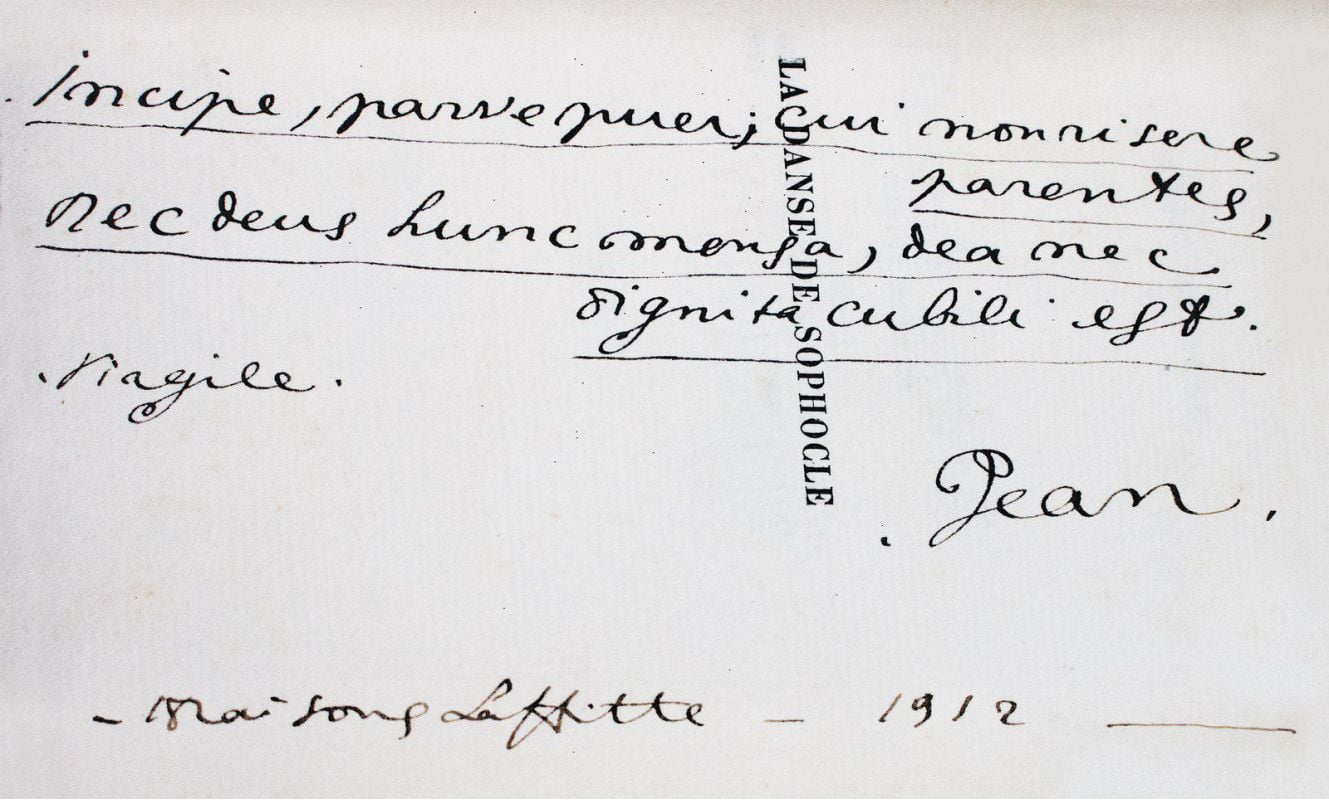 Incipe, parve puer; cui non risere
parentes,
Nec deus hunc mensa, dea nec
dignita cubili est.
. Virgile .
Jean.
- Maisons Laffitte - 1912 -
LA DANSE DE SOPHOCLE